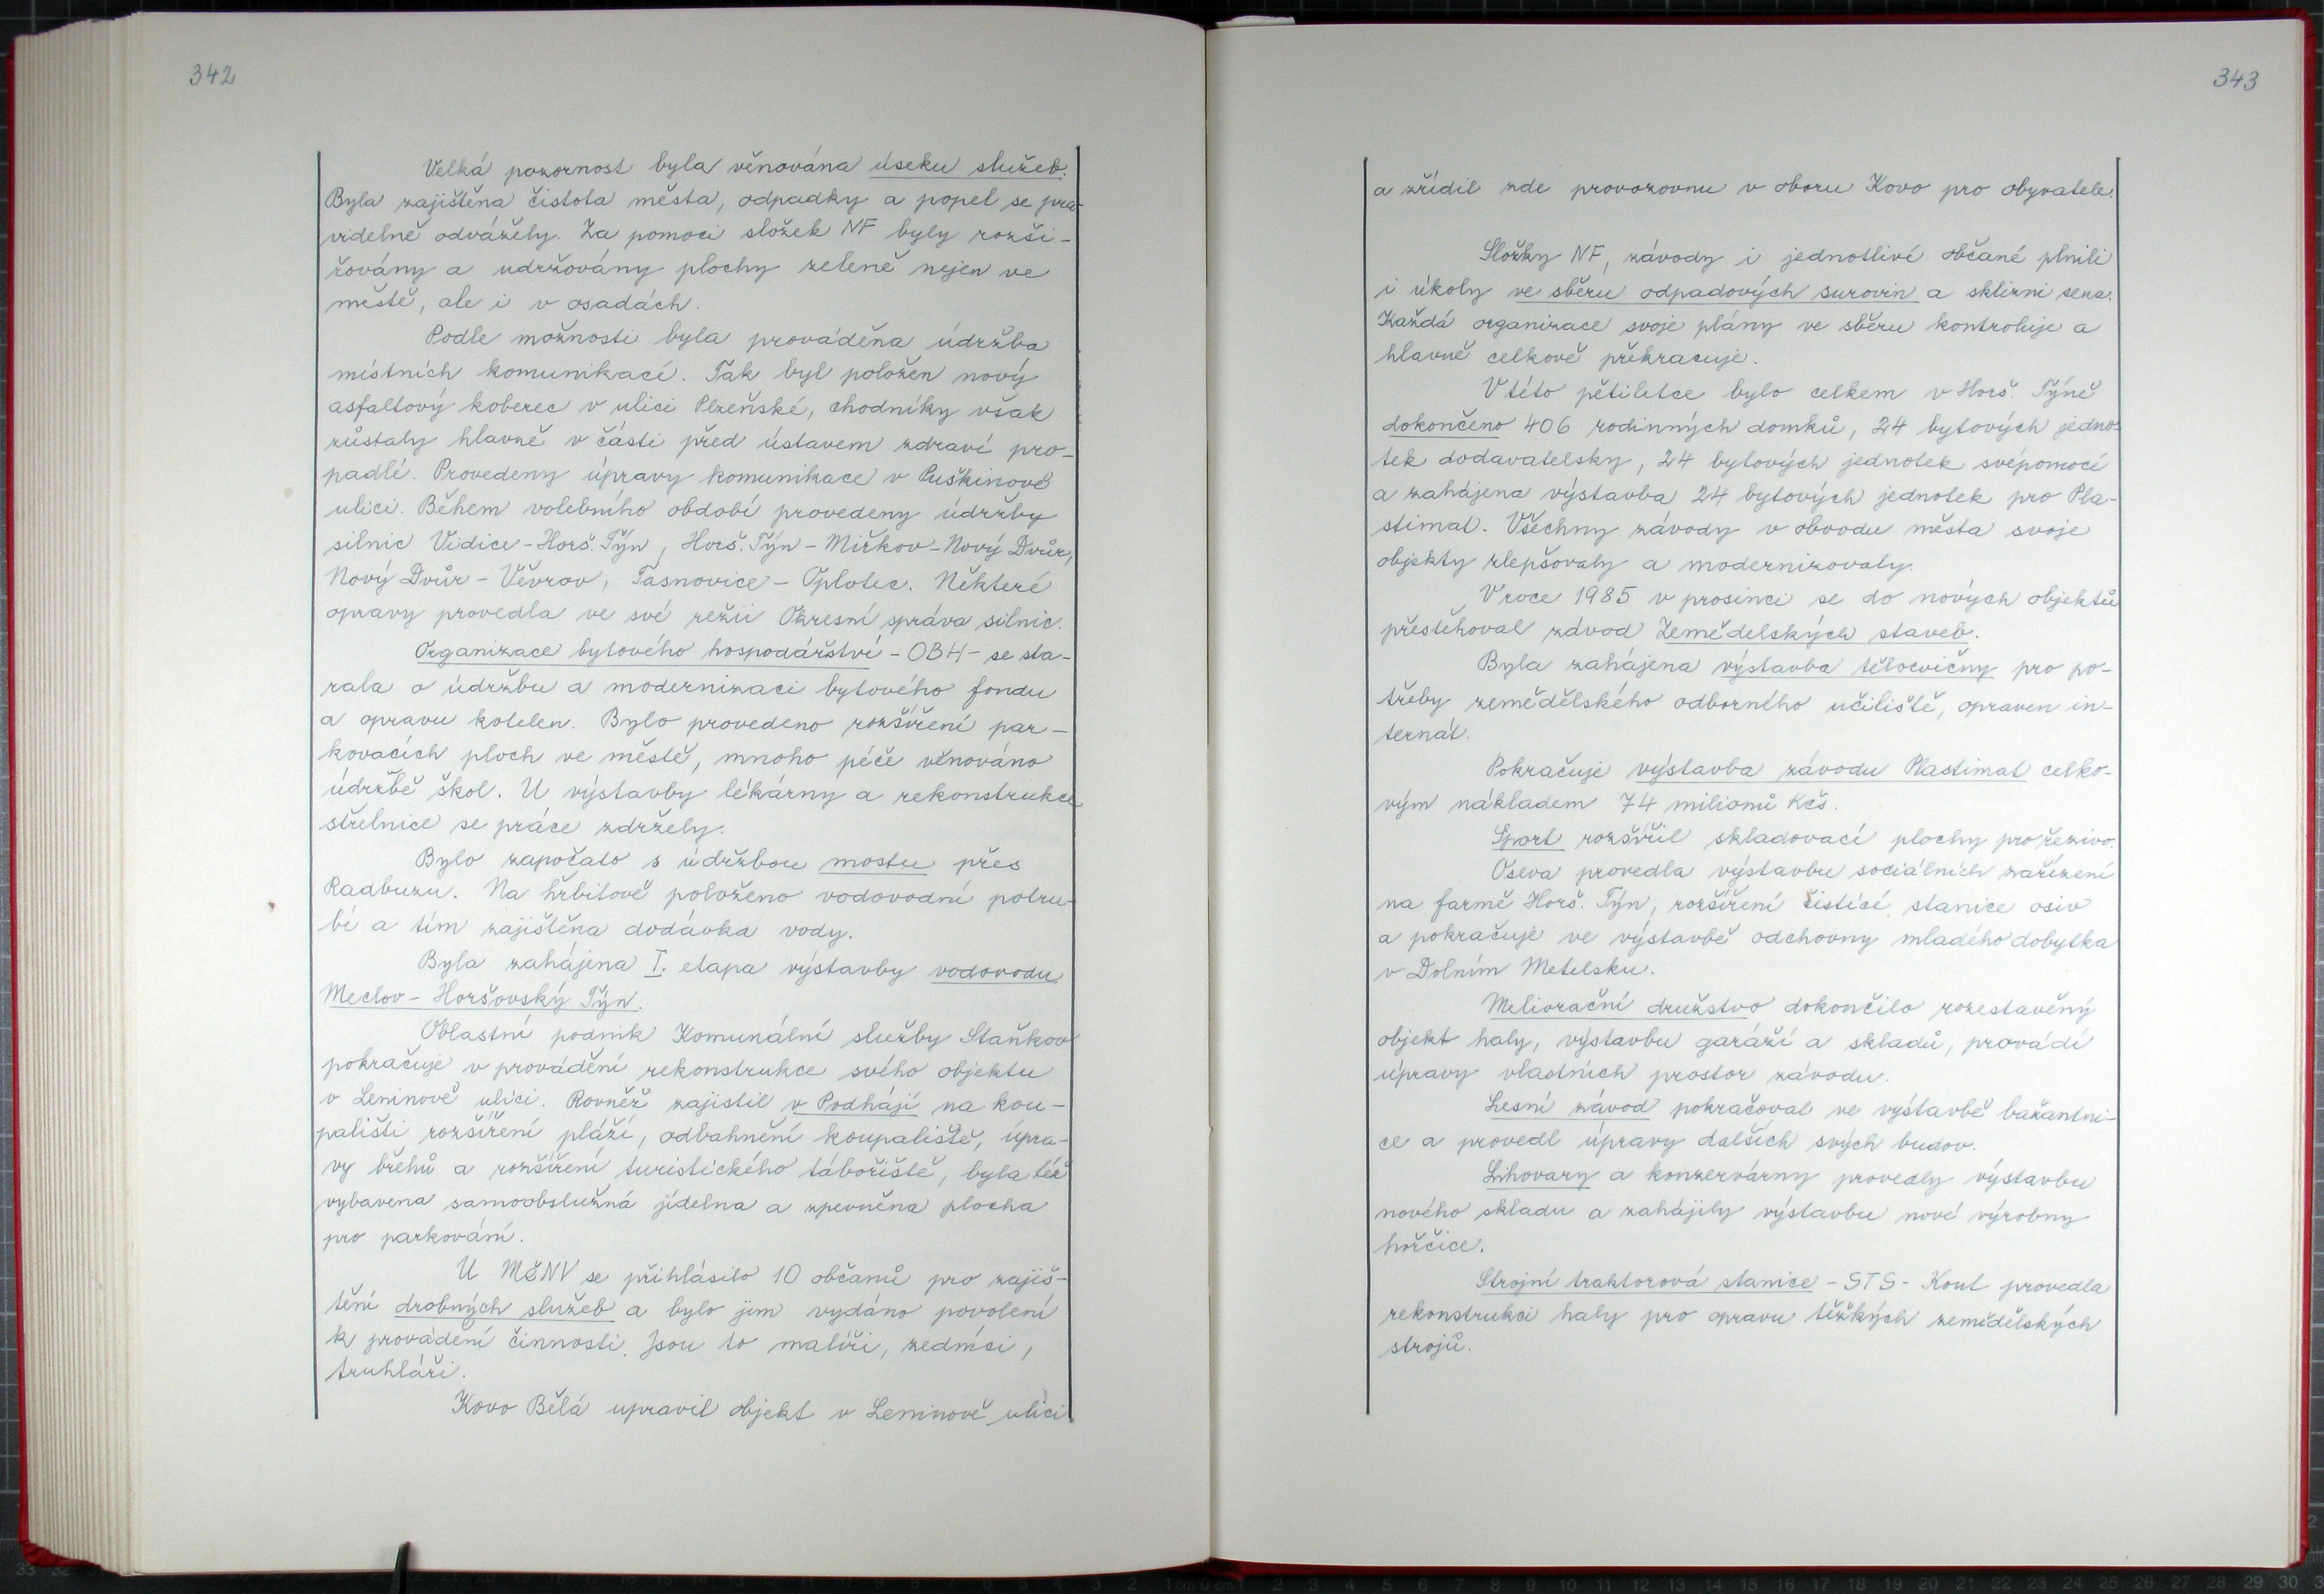 342
Velká pozornost byla věnována úseku služeb.
Byla zajištěna čistota města, odpadky a popel se pra-
videlně odvážely. Za pomoci složek NF byly rozši-
řovány a udržovány plochy zeleně nejen ve
městě, ale i v osadách.
Podle možnosti byla prováděna údržba
místních komunikací. Tak byl položen nový
asfaltový koberec v ulici Plzeňské, chodníky však
zůstaly hlavně v části před ústavem zdraví pro-
padlé. Provedeny úpravy komunikace v Puškinově
ulici. Během volebního období provedeny údržby
silnic Vidice - Horš. Týn, Horš. Týn - Mířkov - Nový Dvůr,
Nový Dvůr - Věvrov, Tasnovice - Oplotec. Některé
opravy provedla ve své režii Okresní správa silnic.
Organizace bytového hospodářství - OBH - se sta-
rala o údržbu a modernizaci bytového fondu
a opravu kotelen. Bylo provedeno rozšíření par-
kovacích ploch ve městě, mnoho péče věnováno
údržbě škol. U výstavby lékárny a rekonstrukce
střelnice se práce zdržely.
Bylo započato s údržbou mostu přes
Radbuzu. Na hřbitově položeno vodovodní potru-
bí a tím zajištěna dodávka vody.
Byla zahájena I. etapa výstavby vodovodu
Meclov - Horšovský Týn.
Oblastní podnik Komunální služby Staňkov
pokračuje v provádění rekonstrukce svého objektu
v Leninově ulici. Rovněž zajistil v Podhájí na kou-
pališti rozšíření pláží, odbahnění koupaliště, úpra-
vy břehů a rozšíření turistického tábořiště, byla též
vybavena samoobslužná jídelna a zpevněna plocha
pro parkování.
U MěNV se přihlásilo 10 občanů pro zajiš-
tění drobných služeb a bylo jim vydáno povolení
k provádění činnosti. Jsou to malíři, zedníci,
truhláři.
Kovo Bělá upravil objekt v Leninově ulici
343
a zřídil zde provozovnu v oboru Kovo pro obyvatele.
Složky NF, závody i jednotliví občané plnili
i úkoly ve sběru odpadových surovin a sklizni sena.
Každá organizace svoje plány ve sběru kontroluje a
hlavně celkově překracuje.
V této pětiletce bylo celkem v Horš. Týně
dokončeno 406 rodinných domků, 24 bytových jedno-
tek dodavatelsky, 24 bytových jednotek svépomocí
a zahájena výstavba 24 bytových jednotek pro Pla-
stimat. Všechny závody v obvodu města svoje
objekty zlepšovaly a modernizovaly.
V roce 1985 v prosinci se do nových objektů
přestěhoval závod Zemědelských staveb.
Byla zahájena výstavba tělocvičny pro po-
třeby zemědělského odborného učiliště, opraven in-
ternát.
Pokračuje výstavba závodu Plastimat celko-
vým nákladem 74 milionů Kčs.
Sport rozšířil skladovací plochy pro řezivo.
Oseva provedla výstavbu sociálních zařízení
na farmě Horš. Týn, rozšíření čistící stanice osiv
a pokračuje ve výstavbě odchovny mladého dobytka
v Dolním Metelsku.
Meliorační družstvo dokončilo rozestavěný
objekt haly, výstavbu garáží a skladů, provádí
úpravy vlastních prostor závodu.
Lesní závod pokračoval ve výstavbě bažantni-
ce a provedl úpravy dalších svých budov.
Lihovary a konzervárny provedly výstavbu
nového skladu a zahájily výstavbu nové výrobny
hořčice.
Strojní traktorová stanice - STS - Kout provedla
rekonstrukci haly pro opravu těžkých zemědělských
strojů.